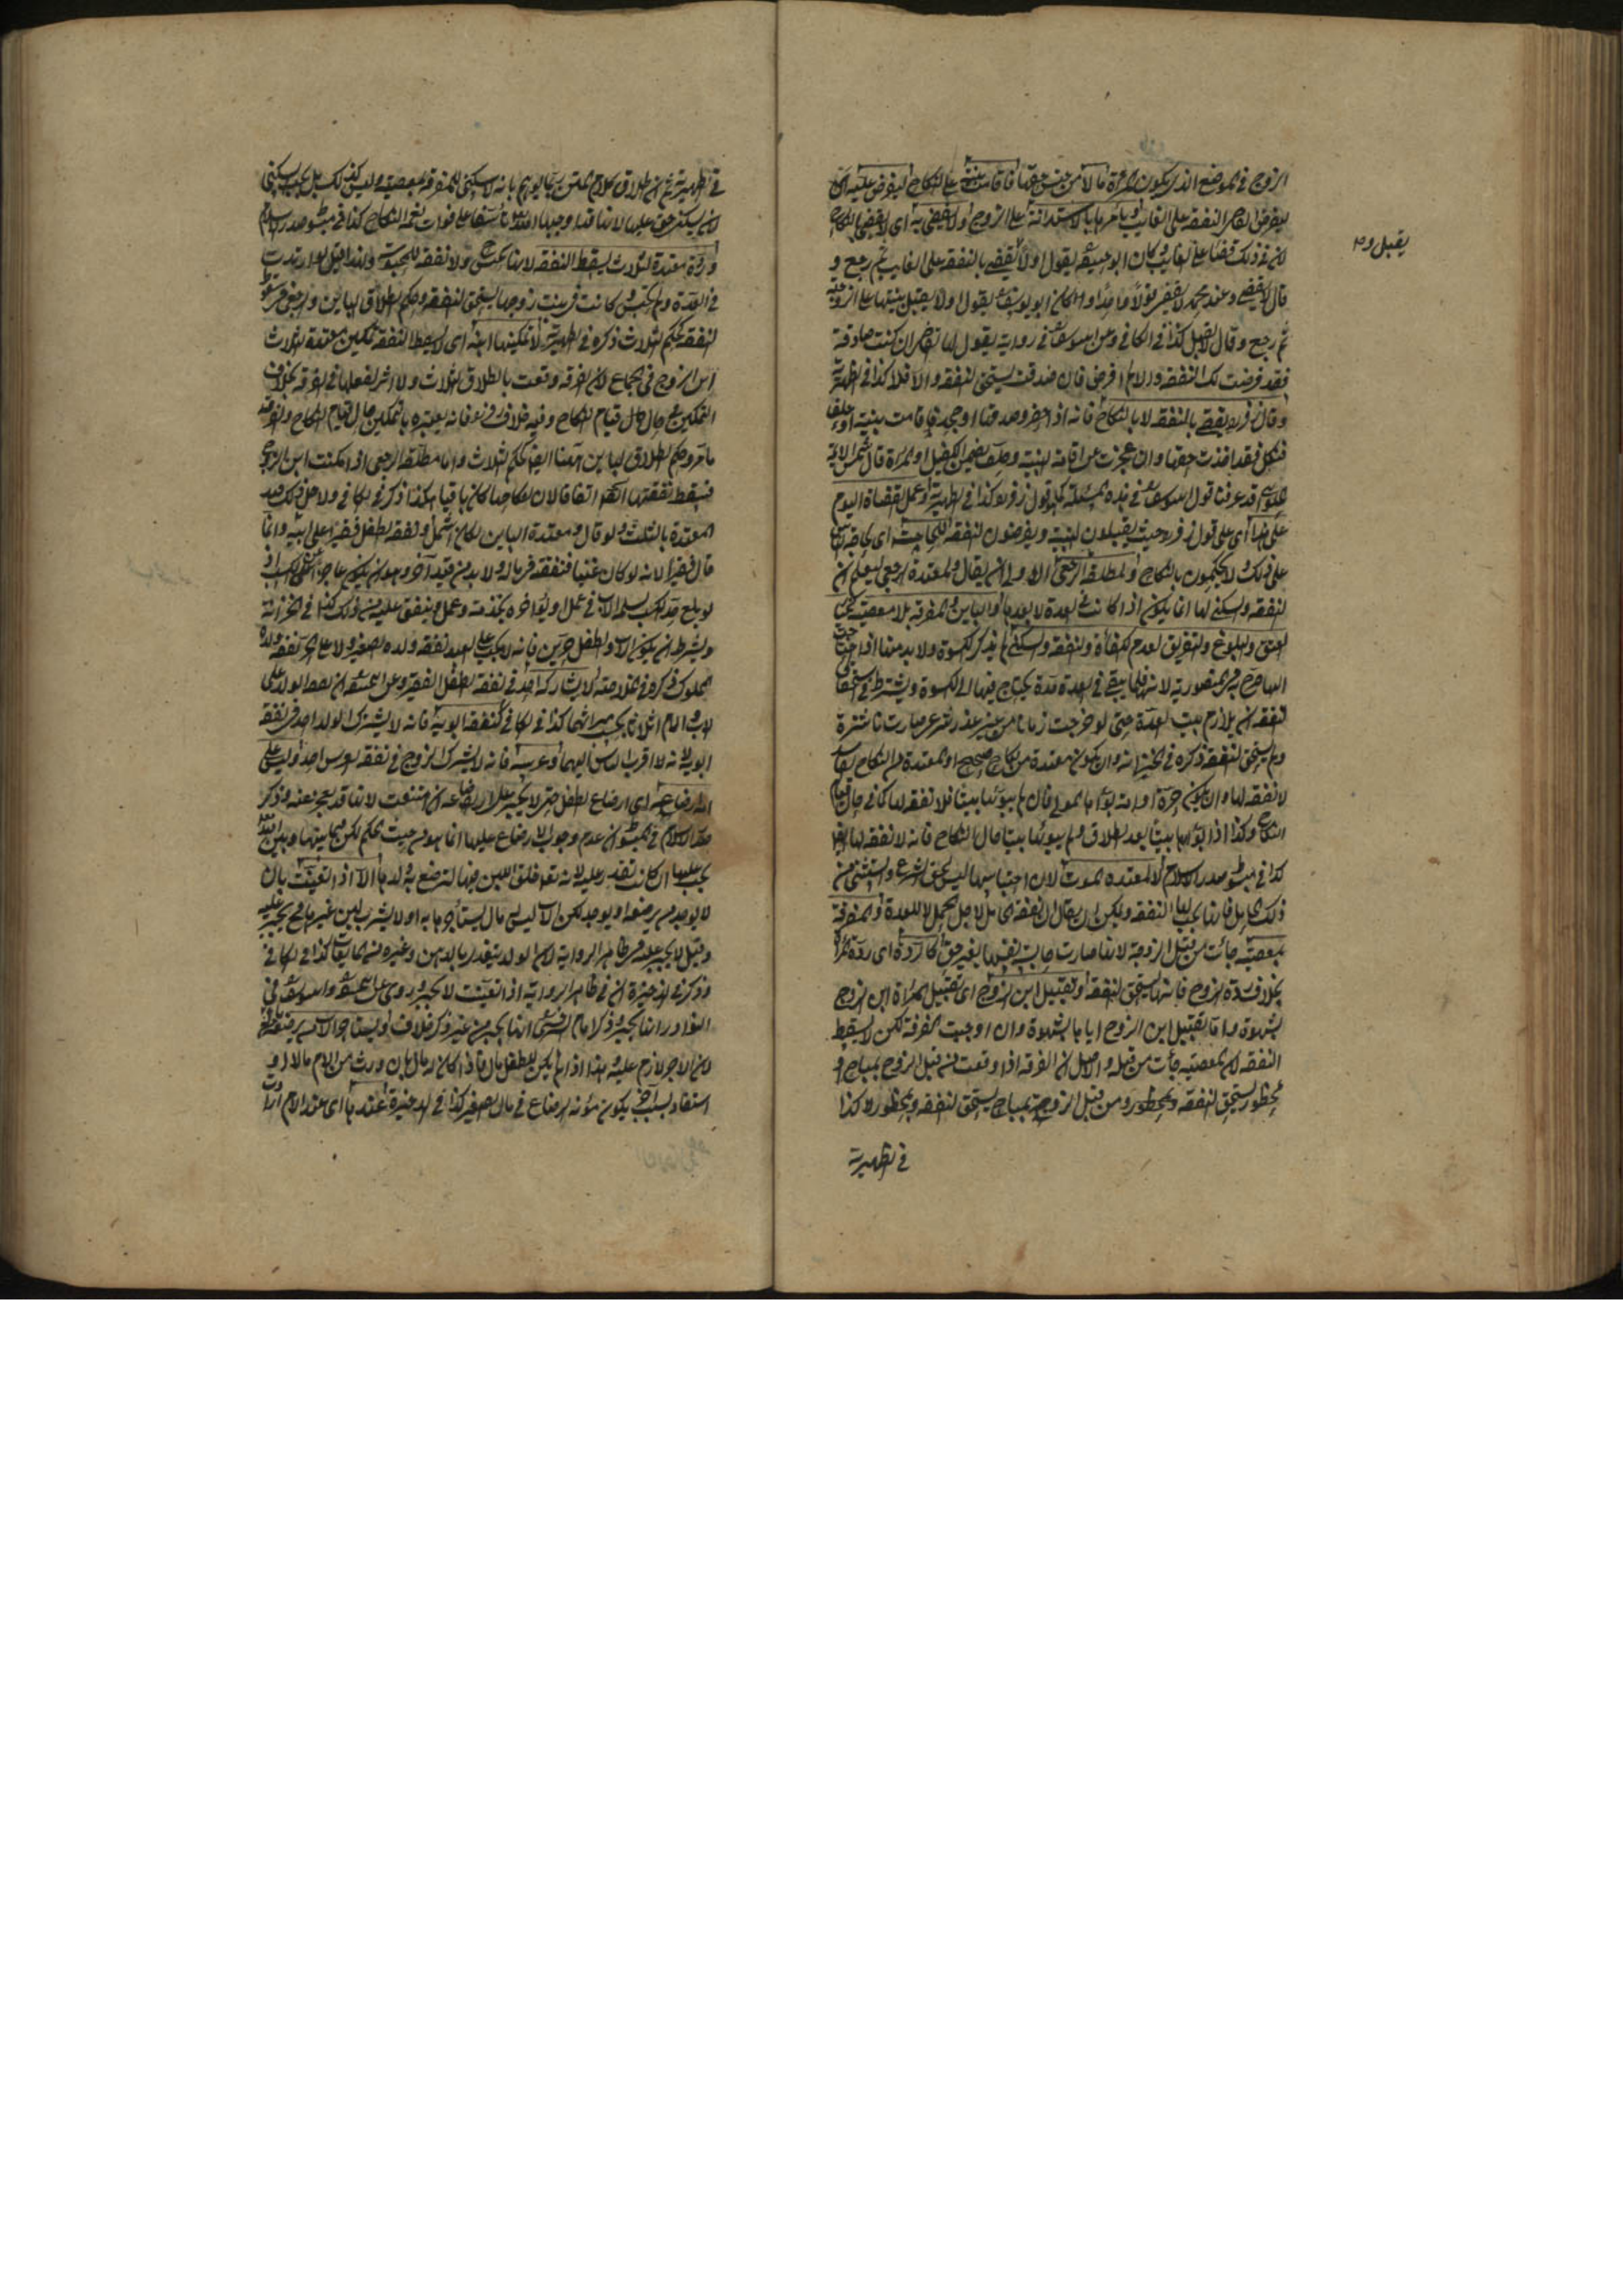 الزوج في الموضع الذي يكون للمرأة مالا من جنس حقها فاقامت بينة على النكاح ليفرض عليه
ليفرض القاضي النفقة على الغائب ويأمرها بالاستدانة على الزوج ولا يقضي به اي لا يقضي بالنكاح
لان في ذلك قضاء على الغائب وكان ابو حنيفة يقول اولا يقضي بالنفقة على الغائب ثم رجع و
قال لا يقضي وعند محمد لا يقضي قولا واحدا وكان ابو يوسف يقول اولا يقبل بينتها على الزوجية
يقبل و
ثم رجع وقال لا يقبل كذا في الكافي وعن ابي يوسف في رواية يقول لها القاضي ان كنت صادقة
فقد فرضت لك النفقة والا لم افرض فان صدقت يستحق النفقة والا فلا كذا في الظهيرية
وقال زفر يقضي بالنفقة لا بالنكاح فانه اذا حضر وصدقها او جحد فاقامت بينة او حلف
فنكل فقد اخذت حقها وان عجزت عن اقامة البينة وحلف يضمن الكفيل او المرأة قال شمس الائمة
قد عرفنا قول ابي يوسف في هذه المسئلة كقول زفر كذا في الظهيرية وعمل القضاة اليوم
على هذا اي على قول زفر حيث يقبلون البينة ويفرضون النفقة للحاجة اي لحاجة الناس
على ذلك ولا يحكمون بالنكاح ولمطلقة الرجعي الاولى ان يقال ولمعتدة الرجعي ليعلم ان
النفقة والسكنى لها انما يكون اذا كانت في العدة لا بعدها والباين والمفرقة بلا معصية كخيار
العتق والبلوغ والتفريق لعدم الكفاءة والنفقة والسكنى لم يذكر الكسوة ولا بد منها اذا احتاجت
اليها صرح به في المنصورية لانه قلما يبقى في العدة مدة يحتاج فيها الى الكسوة ويشترط في استحقاق
النفقة ان يلازم بيت العدة حتى لو خرجت زمانا من غير عذر شرعي صارت ناشزة
ولم يستحق النفقة ذكره في الخزانة وان يكون معتدة من نكاح صحيح اما المعتدة من النكاح الفاسد
لا نفقة لها وان يكون حرة او امة بوأها المولى فان لم يبوئها بيتا فلا نفقة لها كما في حال قيام
النكاح وكذا اذا بوأها بيتا بعد الطلاق ولم يبوئها بيتا حال النكاح فانه لا نفقة لها ايضا
كذا في مبسوط صدر الاسلام لا لمعتدة الموت لان احتباسها ليس لحق الشرع واستثنى من
ذلك الحامل فانها يجب لها النفقة ويمكن ان يقال ان نفقة الحامل لاجل الحمل لا للعدة والمفرقة
بمعصية جاءت من قبل الزوجة لانها صارت حابسة نفسها بغير حق كالردة اي ردة المرأة
بخلاف ردة الزوج فانها يستحق النفقة وتقبيل ابن الزوج اي تقبيل المرأة ابن الزوج
بشهوة واما تقبيل ابن الزوج اياها بالشهوة وان اوجبت الفرقة لكن لا يسقط
النفقة لان المعصية جاءت من قبله والاصل ان الفرقة اذا وقعت من قبل الزوج بمباح او
بمحظور يستحق النفقة ومن قبل الزوجة بمباح يستحق النفقة وبمحظور لا كذا
في الظهيرية
في الظهيرية ثم ان اطلاق كلام المتن ربما يوهم بانه لا سكنى للمفرقة بمعصية وليس كذلك بل يجب السكنى
لان السكنى حق عليها كذا في مبسوط صدر الاسلام
وردة معتدة الثلاث يسقط النفقة لانها تحبس ولا نفقة للمحبوسة ولهذا قيل لو ارتدت
في العدة ولم تحبس كانت في بيت زوجها يستحق النفقة وحكم الطلاق الباين والرجعي في سقوط
النفقة كحكم الثلاث ذكره في الظهيرية لا تمكينها ابنه اي لا يسقط النفقة تمكين معتدة الثلاث
ابن الزوج في الجماع لان الفرقة وقعت بالطلاق الثلاث ولا اثر لفعلها في الفرقة بخلاف
التمكين في حال قيام النكاح وفيه خلاف زفر فانه يعتبره بالتمكين حال قيام النكاح
وحكم الطلاق الباين ههنا ايضا كحكم الثلاث واما مطلقة الرجعي اذا امكنت ابن الزوج
فيسقط نفقتها اتفاقا لان النكاح كان باقيا هكذا ذكر في الكافي ولاجل ذلك قيد
المعتدة بالثلث ولو قال ومعتدة الباين لكان اشمل ونفقة الطفل فقيرا على ابيه وانما
قال فقيرا لانه لو كان غنيا فنفقته في ماله ولا بد من قيد آخر وهو ان يكون عاجزا عن الكسب اذ
لو بلغ حد الكسب يسلمه الاب في عمل او يؤاجره بخدمة وعمل وينفق عليه من ذلك كذا في الخزانة
ويشترط ان يكون الاب والطفل حرين فانه لا يجب على العبد نفقة ولده الصغير ولا على الحر نفقة ولده
المملوك ذكره في الخلاصة ولا يشاركه احد في نفقة الطفل الفقير وعن ابي حنيفة ان نفقة الولد على
الاب والام اثلاثا بحسب ميراثهما كذا في الكافي كنفقة ابويه فانه لا يشترك الولد احد في نفقة
ابويه لانه لا اقرب الناس اليهما وعرسه فانه لا يشرك الزوج في نفقة العرس احد وليس على
امه ارضاعه اي ارضاع الطفل حتى لا يجبر على ارضاعه ان امتنعت لانها قد يعجز عنه وذكر
صدر الاسلام في المبسوط ان عدم وجوب الارضاع عليها انما هو من حيث الحكم لكن فيما بينها وبين الله
يجب عليها ان كانت تقدر عليه لانه تعالى خلق اللبن فيها لترضع به ولدها الا اذا تعينت بان
لا يوجد من يرضعه او يوجد لكن الاب ليس له مال يستأجرها به او لا يشرب لبن غيرها فح يجبر عليه
وقيل لا يجبر عليه في ظاهر الرواية لان الولد يتغذى بالدهن وغيره من المايعات كذا في الكافي
وذكر في الذخيرة ان في ظاهر الرواية اذا تعينت لا يجبر وروي عن ابي حنيفة وابي يوسف في
النوادر انها يجبر وذكر الامام السرخسي انها يجبر من غير ذكر خلاف ويستأجر الاب من يرضعه عندها
لان الاجر لازم عليه وهذا اذا لم يكن للطفل مال فاذا كان له مال بان ورث من الام مالا او
استفاد بسبب آخر يكون مؤنة الرضاع في مال الصغير كذا في الذخيرة عندها اي عند الام